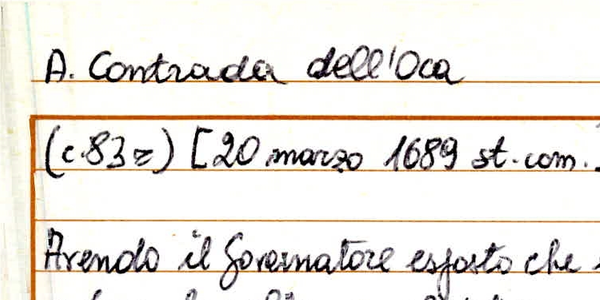 A. Contrada dell'Oca
(c.83r) [20 marzo 1689 st. com.
Avendo il Governatore esposto che